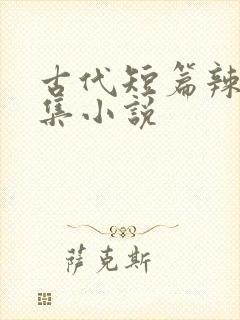 古代短篇辣
集小说
萨克斯